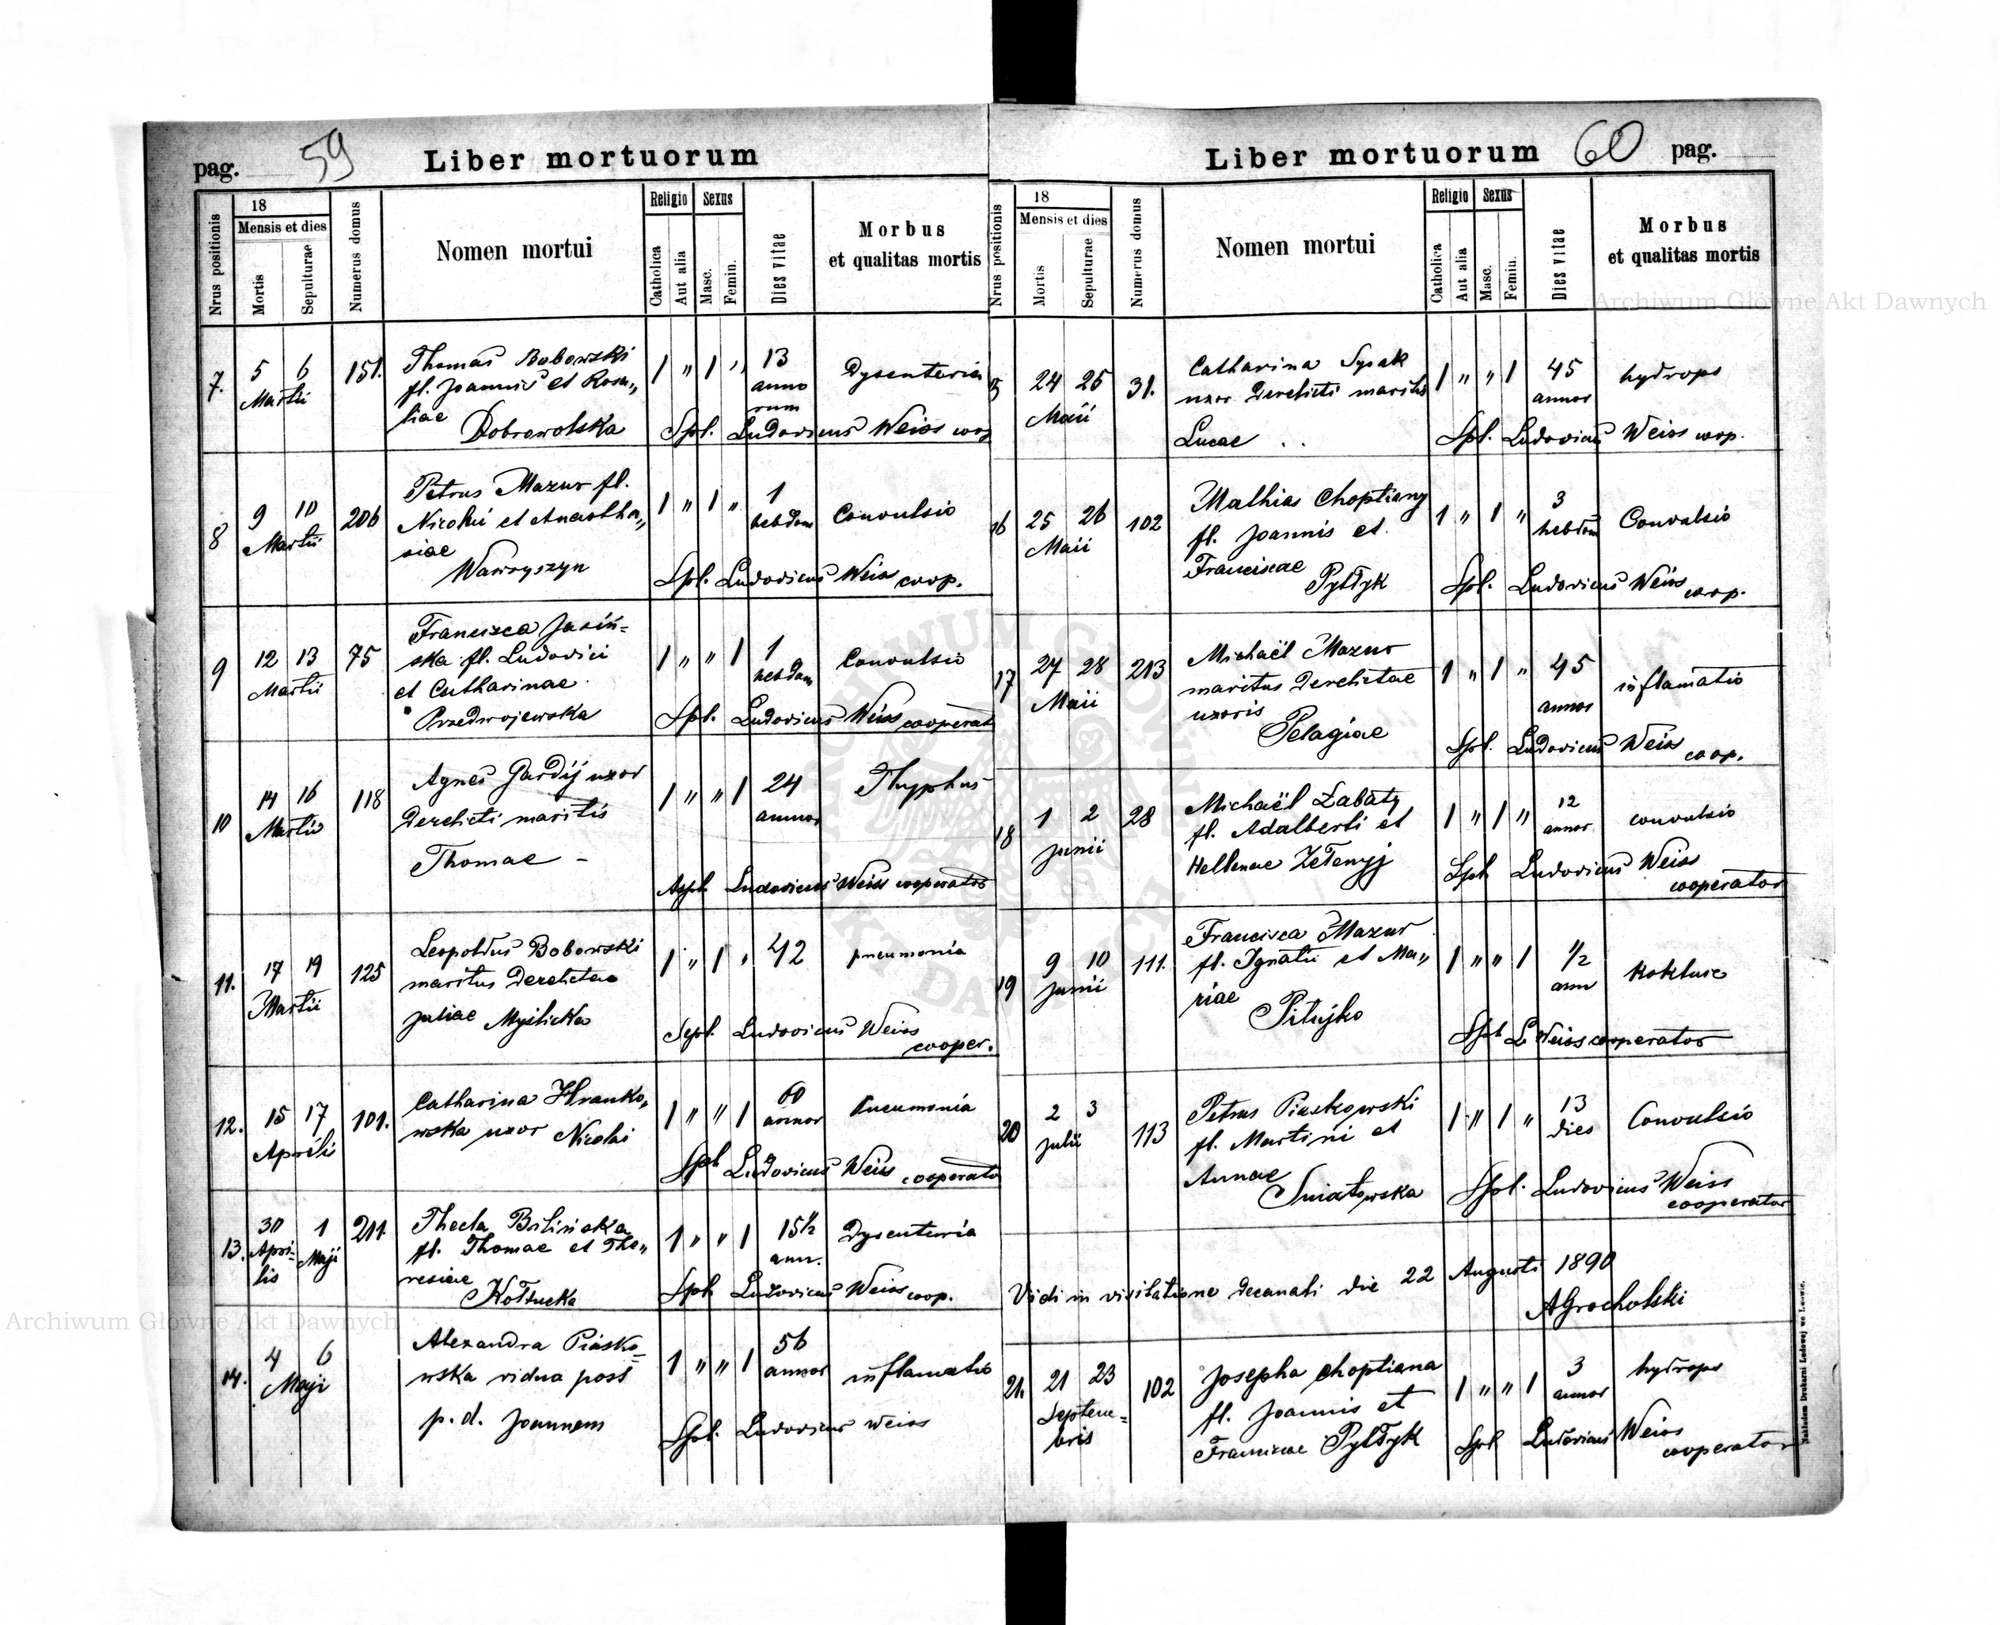 pag. 59 Liber mortuorum
Nrus positionis
18
Mensis et dies
Mortis
Sepulturae
Numerus domus
Nomen mortui
Religio
Catholica
Aut alia
Sexus
Masc.
Femin.
Dies vitae
Morbus
et qualitas mortis
7. 5 6 151. Thomas Bobowski 1 " 1 " 13 Dysenteria
Martii fl. Joannis et Rosa„ anno
liae Dobrowolska rum
Spl. Ludovicus Weiss coop
8 9 10 206 Petrus Mazur fl. 1 " 1 " 1 Convulsio
Martii Nicolai et Anastha„ hebdom
siae
Wawryszyn Spl. Ludovicus Weiss coop.
9 12 13 75 Francisca Jasiń= 1 " " 1 1 Convulsio
Martii ska fl. Ludovici hebdom
et Catharinae
Przedwojewska Spl. Ludovicus Weiss cooperat
10 14 16 118 Agnes Gardij uxor 1 " " 1 24 Thyphus
Martii derelicti maritis annor
Thomae –
Ludovicus Weiss cooperator
11. 17 19 125 Leopoldus Bobowski 1 " 1 " 42 pneumonia
Martii maritus derelictae
Juliae Myślicka Sepl. Ludovicus Weiss
cooper.
12. 15 17 101. Catharina Hranko„ 1 " " 1 60 Pneumonia
Aprili wska uxor Nicolai annor
Spl Ludovicus Weiss
cooperato
13. 30 1 211 Thecla Bilińska 1 " " 1 15½ Dysenteria
Apri- Maji fl. Thomae et The„ ann.
lis resiae
Kołtucka Spl Ludovicus Weiss coop.
14. 4 6 Alexandra Piasko= 1 " " 1 56 inflamatio
Maji wska vidua post annor
p. d. Joannem Spl. Ludovicus Weiss
Liber mortuorum 60 pag.
Nrus positionis
18
Mensis et dies
Mortis
Sepulturae
Numerus domus
Nomen mortui
Religio
Catholica
Aut alia
Sexus
Masc.
Femin.
Dies vitae
Morbus
et qualitas mortis
15 24 25 31. Catharina Sysak 1 " " 1 45 hydrops
Maii uxor derelicti maritis annor
Lucae Spl. Ludovicus Weiss coop.
16 25 26 102 Mathias Choptiany 1 " 1 " 3 Convulsio
Maii fl. Joannis et hebdom
Franciscae
Pyłtyk Spl. Ludovicus Weiss
coop.
17 27 28 213 Michaël Mazur 1 " 1 " 45 inflamatio
Maii maritus derelictae annor
uxoris
Pelagiae Spl. Ludovicus Weiss
coop.
18 1 2 28 Michaël Łabaty 1 " 1 " 12 convulsio
Junii fl. Adalberti et annor
Hellenae Zełenyj Spl Ludovicus Weiss
cooperator
19 9 10 111. Francisca Mazur 1 " " 1 ½ Koklusz
Junii fl. Ignatii et Ma„ ann
riae
Pitujko Spl L Weiss cooperator
20 2 3 113 Petrus Piaskowski 1 " 1 " 13 Convulsio
Julii fl. Martini et dies
Annae
Śniatowska Spl. Ludovicus Weiss
cooperator
Vidi in visitatione decanali die 22 Augusti 1890
AGrocholski
21. 21 23 102 Josepha Choptiana 1 " " 1 3 hydrops
Septem= fl. Joannis et annor
bris Franciscae Pyłtyk Spl Ludovicus Weiss
cooperator
Nakładem Drukarni Ludowej we Lwowie.
Archiwum Główne Akt Dawnych
Archiwum Główne Akt Dawnych
ARCHIWUM GŁÓWNE AKT DAWNYCH